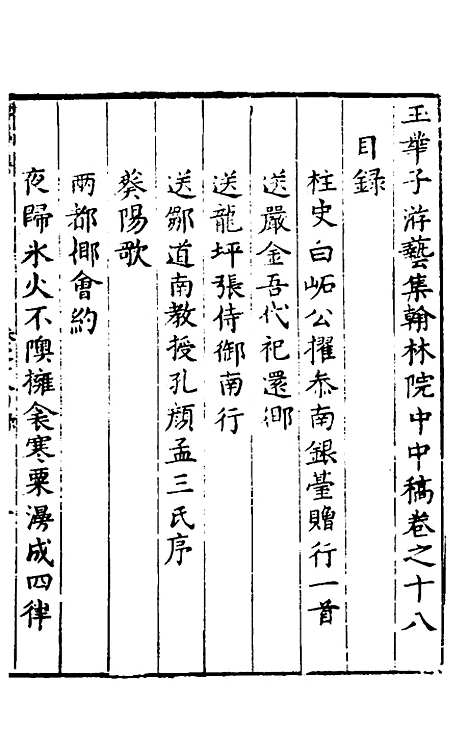 玉華子游藝集翰林院中中稿卷之十八
目錄
柱史白岳公擢叅南銀臺贈行一首
送嚴金吾代祀還鄉
送龍坪張侍御南行
送鄒道南教授孔顏孟三氏序
葵陽歌
兩都鄉會約
夜歸氷火不隩擁衾寒粟漫成四律